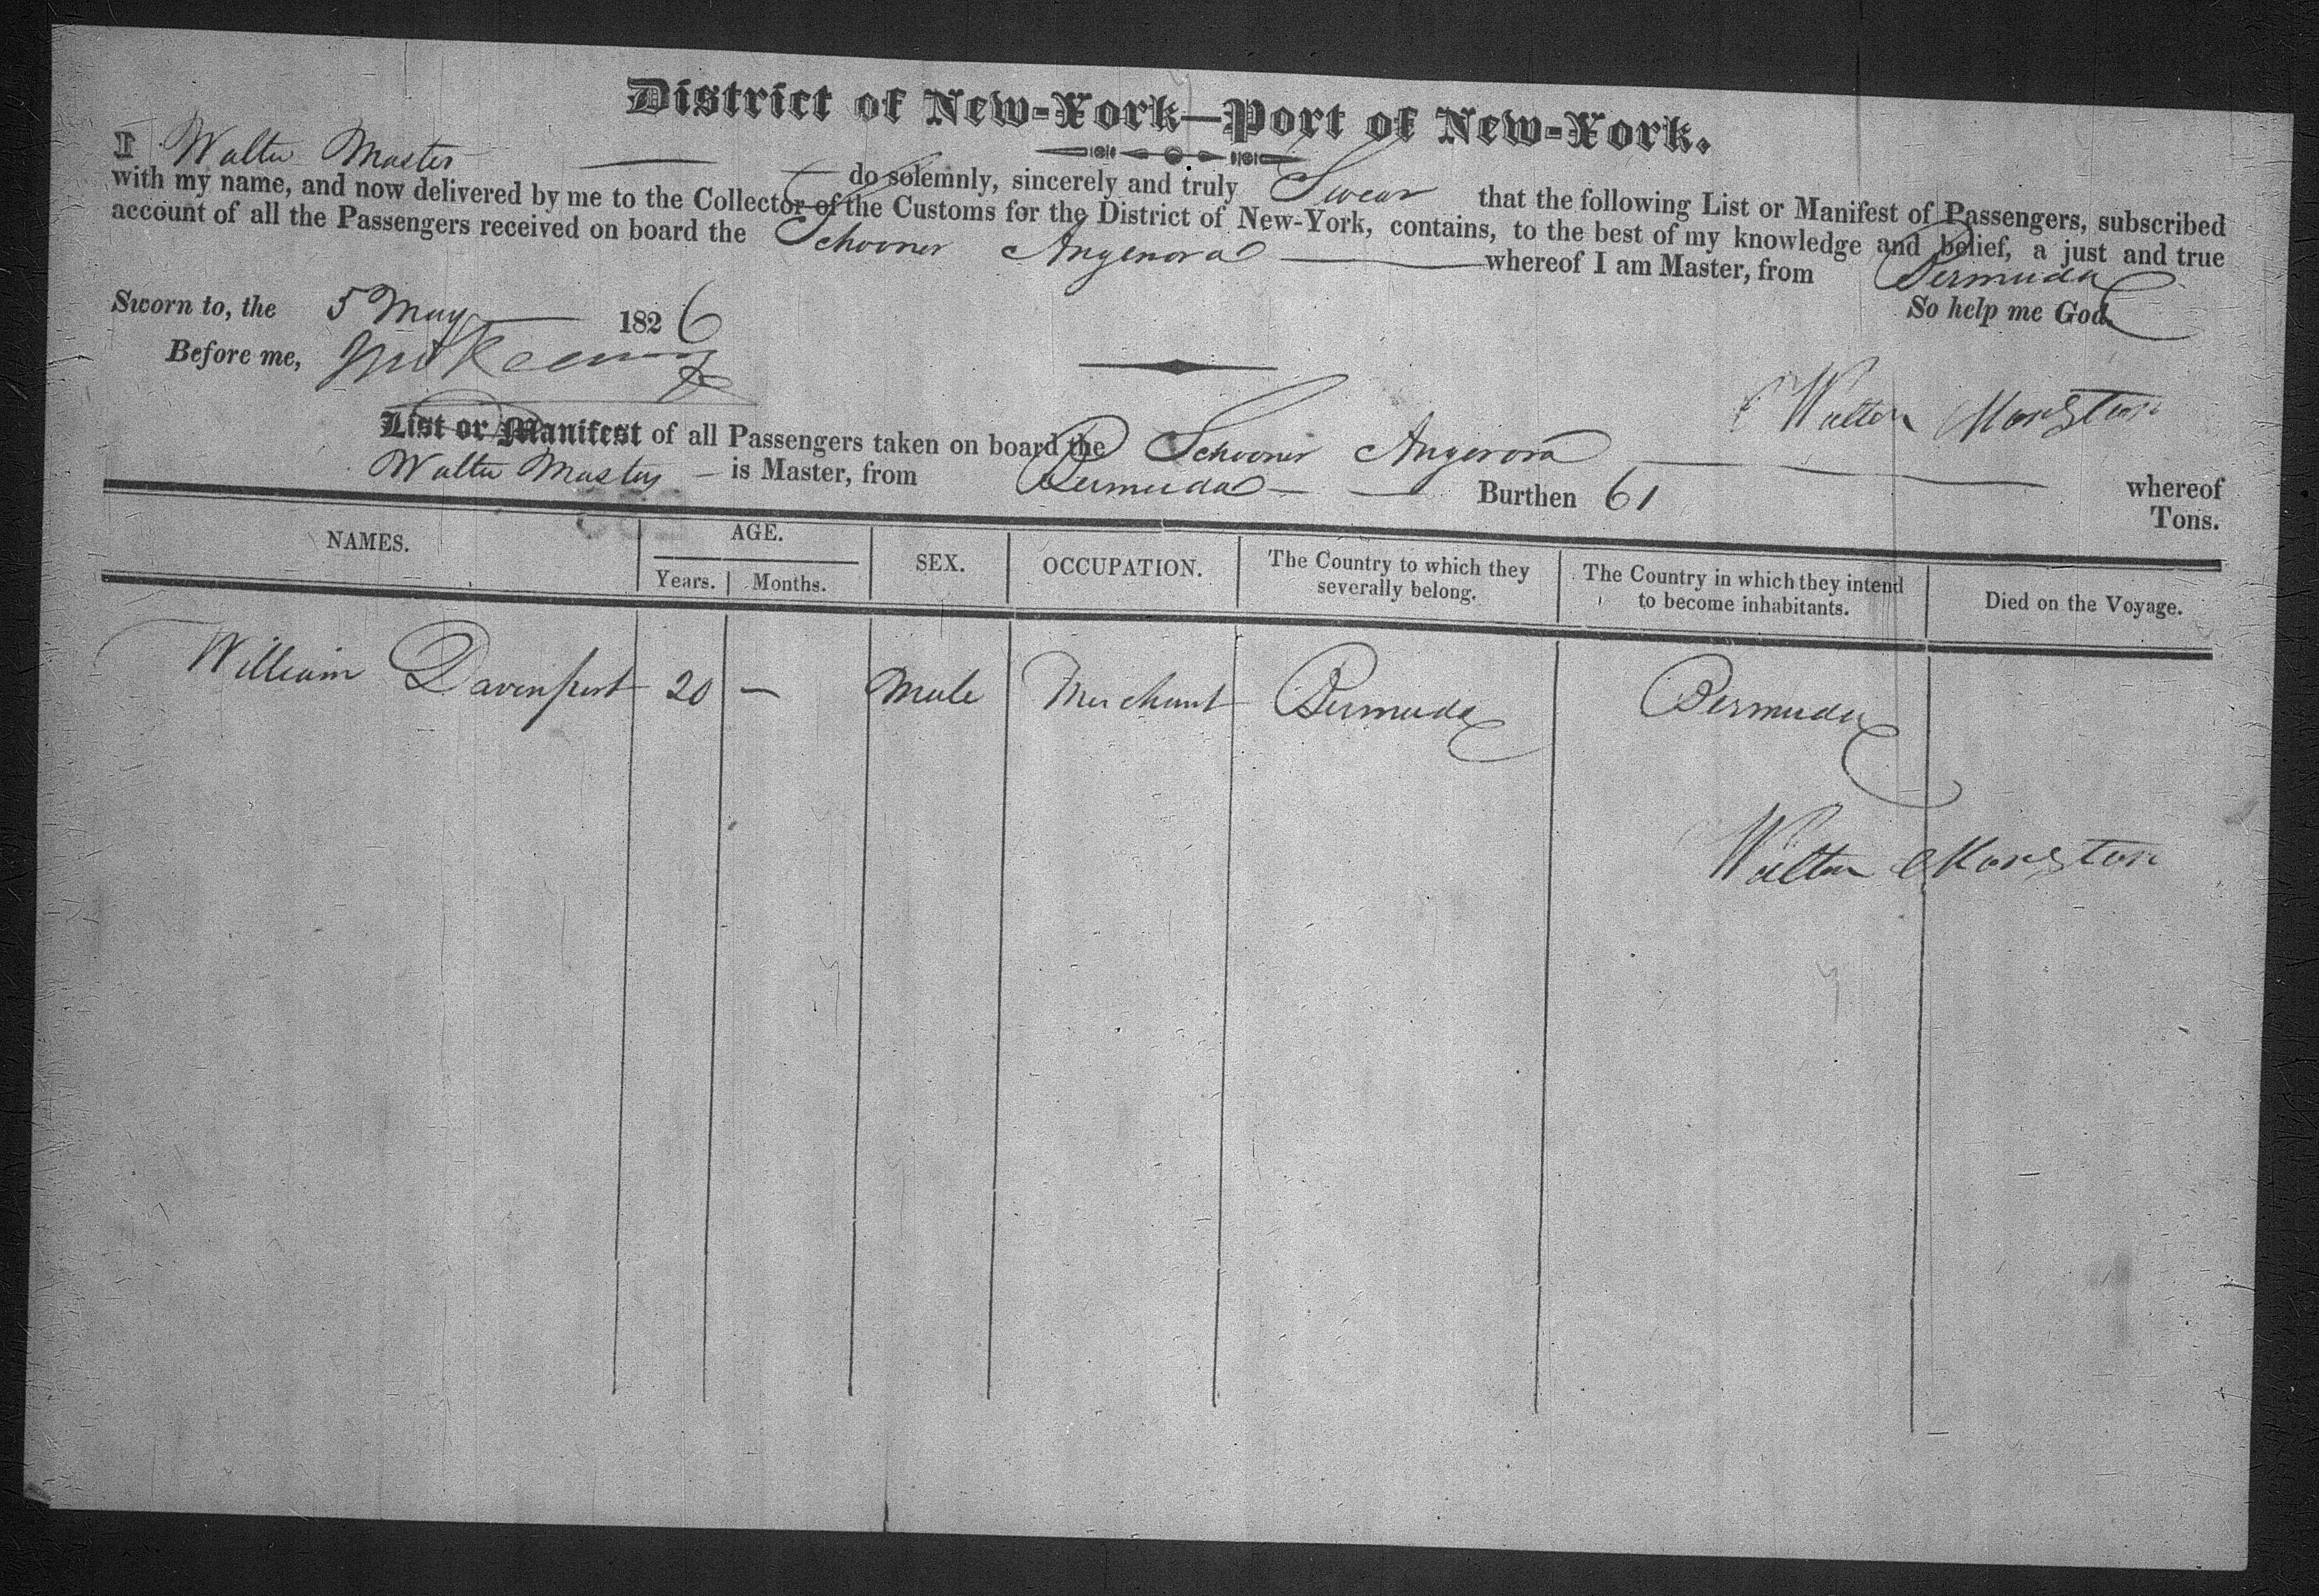 District of New-York—Port of New-York.
I Walter Master — do solemnly, sincerely and truly Swear that the following List or Manifest of Passengers, subscribed
with my name, and now delivered by me to the Collector of the Customs for the District of New-York, contains, to the best of my knowledge and belief, a just and true
account of all the Passengers received on board the Schooner Angenora — whereof I am Master, from Bermuda
So help me God.
Sworn to, the 5 May 1826
Before me,
Walter
List or Manifest of all Passengers taken on board the Schooner Angerora — whereof
Walter Masters — is Master, from Bermuda — Burthen 61 Tons.
NAMES. AGE. SEX. OCCUPATION. The Country to which they severally belong. The Country in which they intend to become inhabitants. Died on the Voyage.
Years. Months.
William Davenport 20 — Male Merchant Bermuda Bermuda
Walter